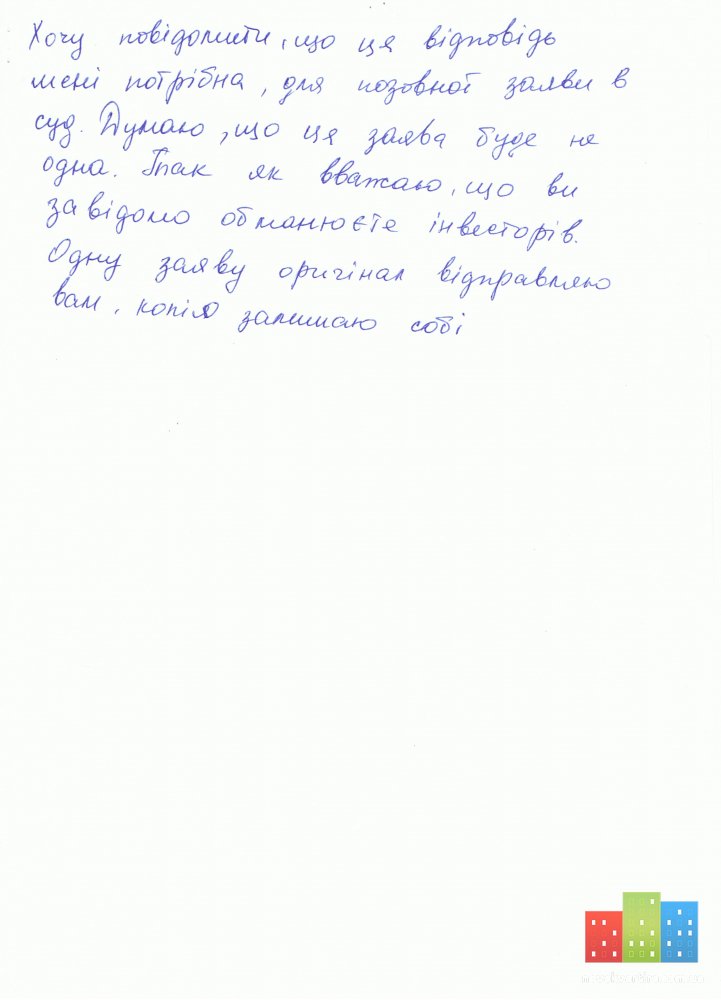 Хочу повідомити, що ця відповідь
мені потрібна, для позовної заяви в
суд. Думаю, що ця заява буде не
одна. Так як вважаю, що ви
завідомо обманюєте інвесторів.
Одну заяву оригінал відправляю
вам, копію залишаю собі